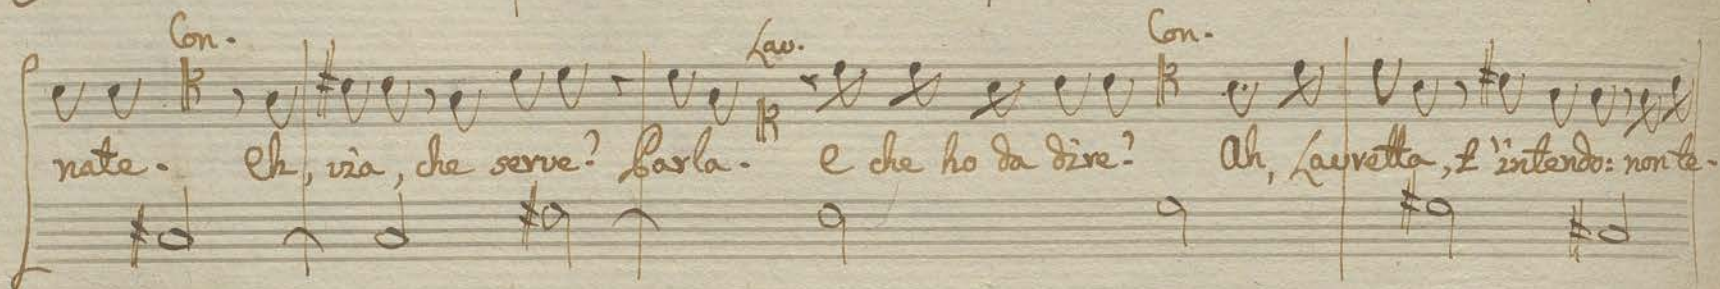 Con. Lau. Con.
nate. Eh, via, che serve? Parla. e che ho da dire? Ah, Lauretta, t'intendo: non te-